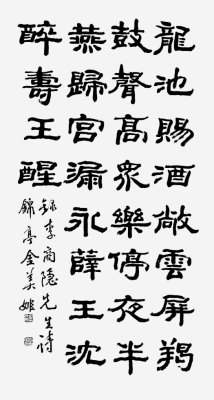 龍池賜酒敞雲屏羯
鼓聲高衆樂停夜半
燕歸宮漏永薛王沈
醉壽王醒
錄李商隱先生詩
錦亭金美姬